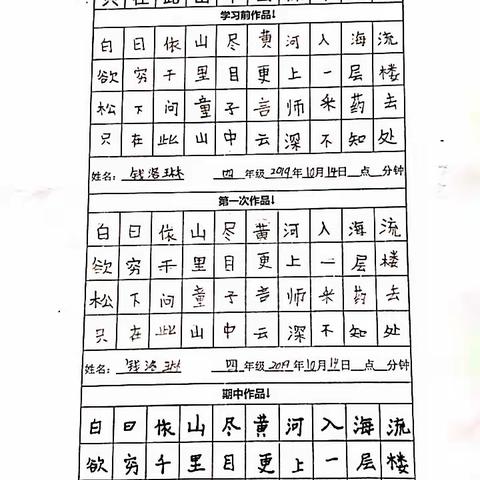 只在此山中云深不知处
学习前作品↓
白日依山尽黄河入海流
欲穷千里目更上一层楼
松下问童子言师采药去
只在此山中云深不知处
姓名: 钱洛琳 四 年级 2019 年 10 月 14 日 点 分钟
第一次作品↓
白日依山尽黄河入海流
欲穷千里目更上一层楼
松下问童子言师采药去
只在此山中云深不知处
姓名: 钱洛琳 四 年级 2019 年 10 月 14 日 点 分钟
期中作品↓
白日依山尽黄河入海流
欲穷千里目更上一层楼